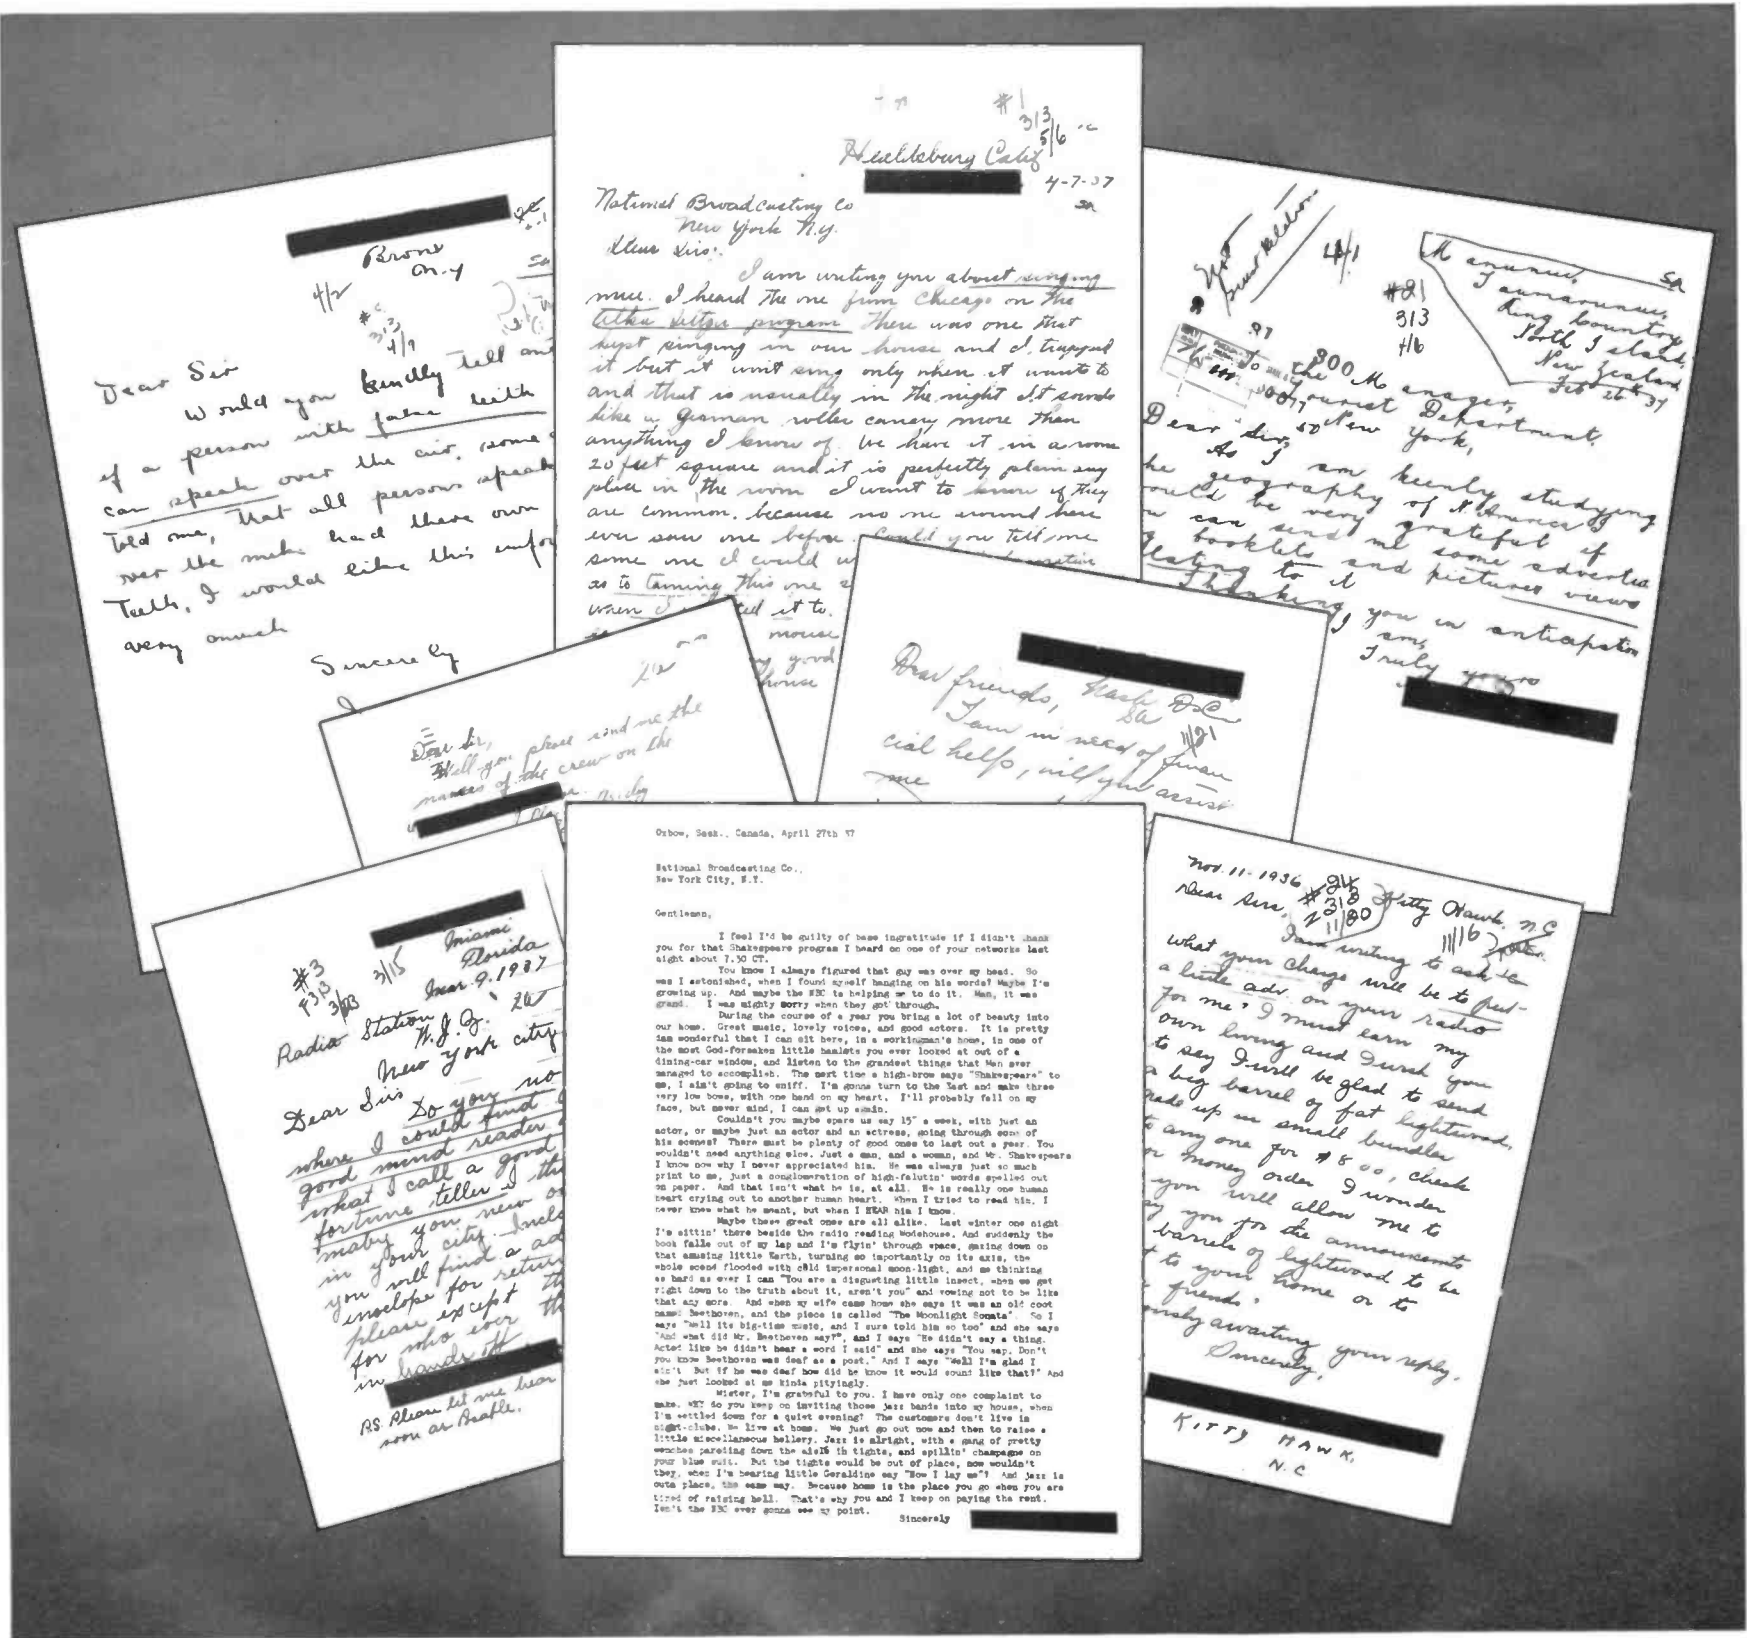 Bronx
N.Y
4/2
313
4/7
Dear Sir
Would you kindly tell
if a person with false teeth
can speak over the air, some
told me, that all persons speak
over the make had there own
Teeth, I would like this infor
very much
Sincerely
#1
313
5/6
Healdsburg Calif
4-7-37
SR
National Broadcasting Co
New York N.Y.
Dear Sirs:
I am writing you about singing
mice. I heard the one from Chicago on the
Alka Seltzer program There was one that
kept singing in our house and I trapped
it but it wont sing only when it wants to
and that is usually in the night It sounds
like a German roller canary more than
anything I know of. We have it in a room
20 feet square and it is perfectly plain any
place in the room I want to know if they
are common, because no one around here
ever saw one before. Could you tell me
some one I could
as to taming this one
when I ted it to
mouse
good
house
4/1
#21
313
4/6
Manunui,
Taumarunui,
King Country
North Island,
New Zealand
Feb 26th 37
To the Manager,
Tourist Department,
New York,
Dear Sir,
As I am keenly studying
he geography of N. America I
ould be very grateful if
can send me some advertis
booklets and pictures views
lating to it
Thanking you in anticipation
I am,
Truly yours
Dear Sir,
Will you please send me the
names of the crew on the
Dear friends, Wash D.C.
SR
11/21
I am in need of finan
cial help, will you assist
me
#3
313
3/23
3/15
Miami
Florida
Mar. 9. 1937
Radio Station
W.J.Z.
New York city
Dear Sirs
Do you no
where I could find
good mind reader
what I call a good
fortune teller I th
maby you new o
in your city. Inclo
you will find a ad
envelope for return
please except th
for who ever th
in hands off
P.S. Please let me hear
soon as Posable.
Oxbow, Sask., Canada, April 27th 37
National Broadcasting Co.,
New York City, N.Y.
Gentlemen,
I feel I'd be guilty of base ingratitude if I didn't thank
you for that Shakespeare program I heard on one of your networks last
night about 7.30 CT.
You know I always figured that guy was over my head. So
was I astonished, when I found myself hanging on his words? Maybe I'm
growing up. And maybe the NBC is helping me to do it. Man, it was
grand. I was mighty sorry when they got through.
During the course of a year you bring a lot of beauty into
our home. Great music, lovely voices, and good actors. It is pretty
dam wonderful that I can sit here, in a workingman's home, in one of
the most God-forsaken little hamlets you ever looked at out of a
dining-car window, and listen to the grandest things that Man ever
managed to accomplish. The next time a high-brow says "Shakespeare" to
me, I ain't going to sniff. I'm gonna turn to the East and make three
very low bows, with one hand on my heart. I'll probably fall on my
face, but never mind, I can get up again.
Couldn't you maybe spare us say 15" a week, with just an
actor, or maybe just an actor and an actress, going through some of
his scenes? There must be plenty of good ones to last out a year. You
wouldn't need anything else. Just a man, and a woman, and Mr. Shakespeare
I know now why I never appreciated him. He was always just so much
print to me, just a conglomeration of high-falutin' words spelled out
on paper. And that isn't what he is, at all. He is really one human
heart crying out to another human heart. When I tried to read him, I
never knew what he meant, but when I HEAR him I know.
Maybe these great ones are all alike. Last winter one night
I'm sittin' there beside the radio reading Wodehouse. And suddenly the
book falls out of my lap and I'm flyin' through space, gazing down on
that amusing little Earth, turning so importantly on its axis, the
whole scend flooded with cold impersonal moon-light, and me thinking
as hard as ever I can "You are a disgusting little insect, when we get
right down to the truth about it, aren't you" and vowing not to be like
that any more. And when my wife came home she says it was an old coot
named Beethoven, and the piece is called "The Moonlight Sonata". So I
says "Well its big-time music, and I sure told him so too" and she says
"And what did Mr. Beethoven say?", and I says "He didn't say a thing.
Acted like he didn't hear a word I said" and she says "You sap. Don't
you know Beethoven was deaf as a post." And I says "Well I'm glad I
ain't. But if he was deaf how did he know it would sound like that?" And
she just looked at me kinda pityingly.
Mister, I'm grateful to you. I have only one complaint to
make. WHY do you keep on inviting those jazz bands into my house, when
I'm settled down for a quiet evening? The customers don't live in
night-clubs. We live at home. We just go out now and then to raise a
little miscellaneous hellery. Jazz is alright, with a gang of pretty
wenches parading down the aisle in tights, and spillin' champagne on
your blue suit. But the tights would be out of place, now wouldn't
they, when I'm hearing little Geraldine say "Now I lay me"? And jazz is
outa place, the same way. Because home is the place you go when you are
tired of raising hell. That's why you and I keep on paying the rent.
Isn't the NBC ever gonna see my point.
Sincerely
Nov. 11-1936
Kitty Hawk, N.C
11/16
11/20
Dear Sirs,
I am writing to ask
what your charge will be to put
a little adv. on your radio
for me? I must earn my
own living and I wish you
to say I will be glad to send
a big barrel of fat lightwood,
made up in small bundles
to any one for $8.00, check
or money order I wonder
you will allow me to
ay you for the announcements
barrels of lightwood to be
t to your home or to
friends.
ously awaiting your reply,
Sincerely,
KITTY HAWK,
N.C